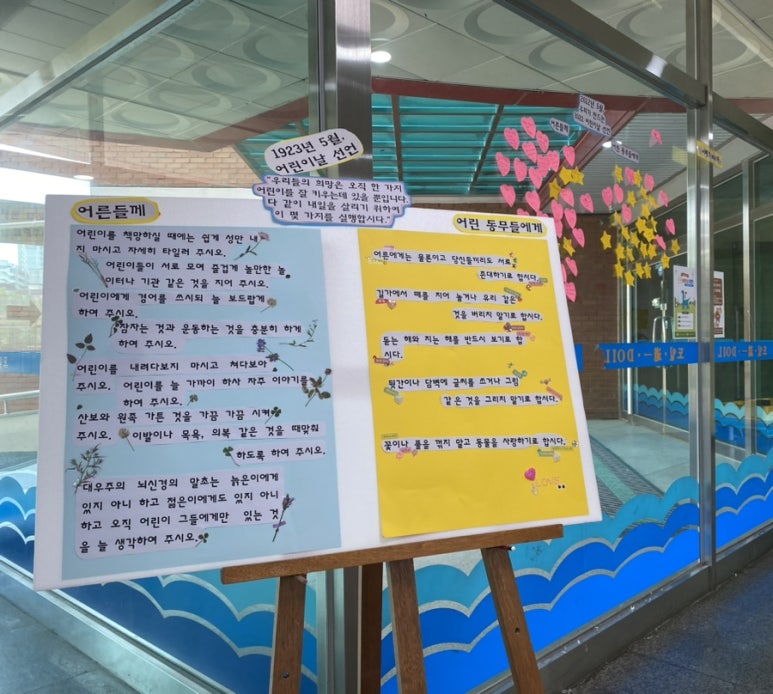 1923년 5월,
어린이날 선언
"우리들의 희망은 오직 한 가지
어린이를 잘 키우는데 있을 뿐입니다.
다 같이 내일을 살리기 위하여
이 몇 가지를 실행합시다."
어른들께
어린이를 책망하실 때에는 쉽게 성만 내
지 마시고 자세히 타일러 주시오.
어린이들이 서로 모여 즐겁게 놀만한 놀
이터나 기관 같은 것을 지어 주시오.
어린이에게 경어를 쓰시되 늘 보드랍게
하여 주시오.
잠자는 것과 운동하는 것을 충분히 하게
하여 주시오.
어린이를 내려다보지 마시고 쳐다보아
주시오. 어린이를 늘 가까이 하사 자주 이야기를
하여 주시오.
산보와 원족 가튼 것을 가끔 가끔 시켜
주시오. 이발이나 목욕, 의복 같은 것을 때맞춰
하도록 하여 주시오.
대우주의 뇌신경의 말초는 늙은이에게
있지 아니 하고 젊은이에게도 있지 아니
하고 오직 어린이 그들에게만 있는 것
을 늘 생각하여 주시오.
어린 동무들에게
어른에게는 물론이고 당신들끼리도 서로
존대하기로 합시다.
길가에서 떼를 지어 놀거나 유리 같은
것을 버리지 말기로 합시다.
돋는 해와 지는 해를 반드시 보기로 합
시다.
뒷간이나 담벽에 글씨를 쓰거나 그림
같은 것을 그리지 말기로 합시다.
꽃이나 풀을 꺾지 말고 동물을 사랑하기로 합시다.
LOVE
2022년 5월,
어른들께
어린 동무들에게